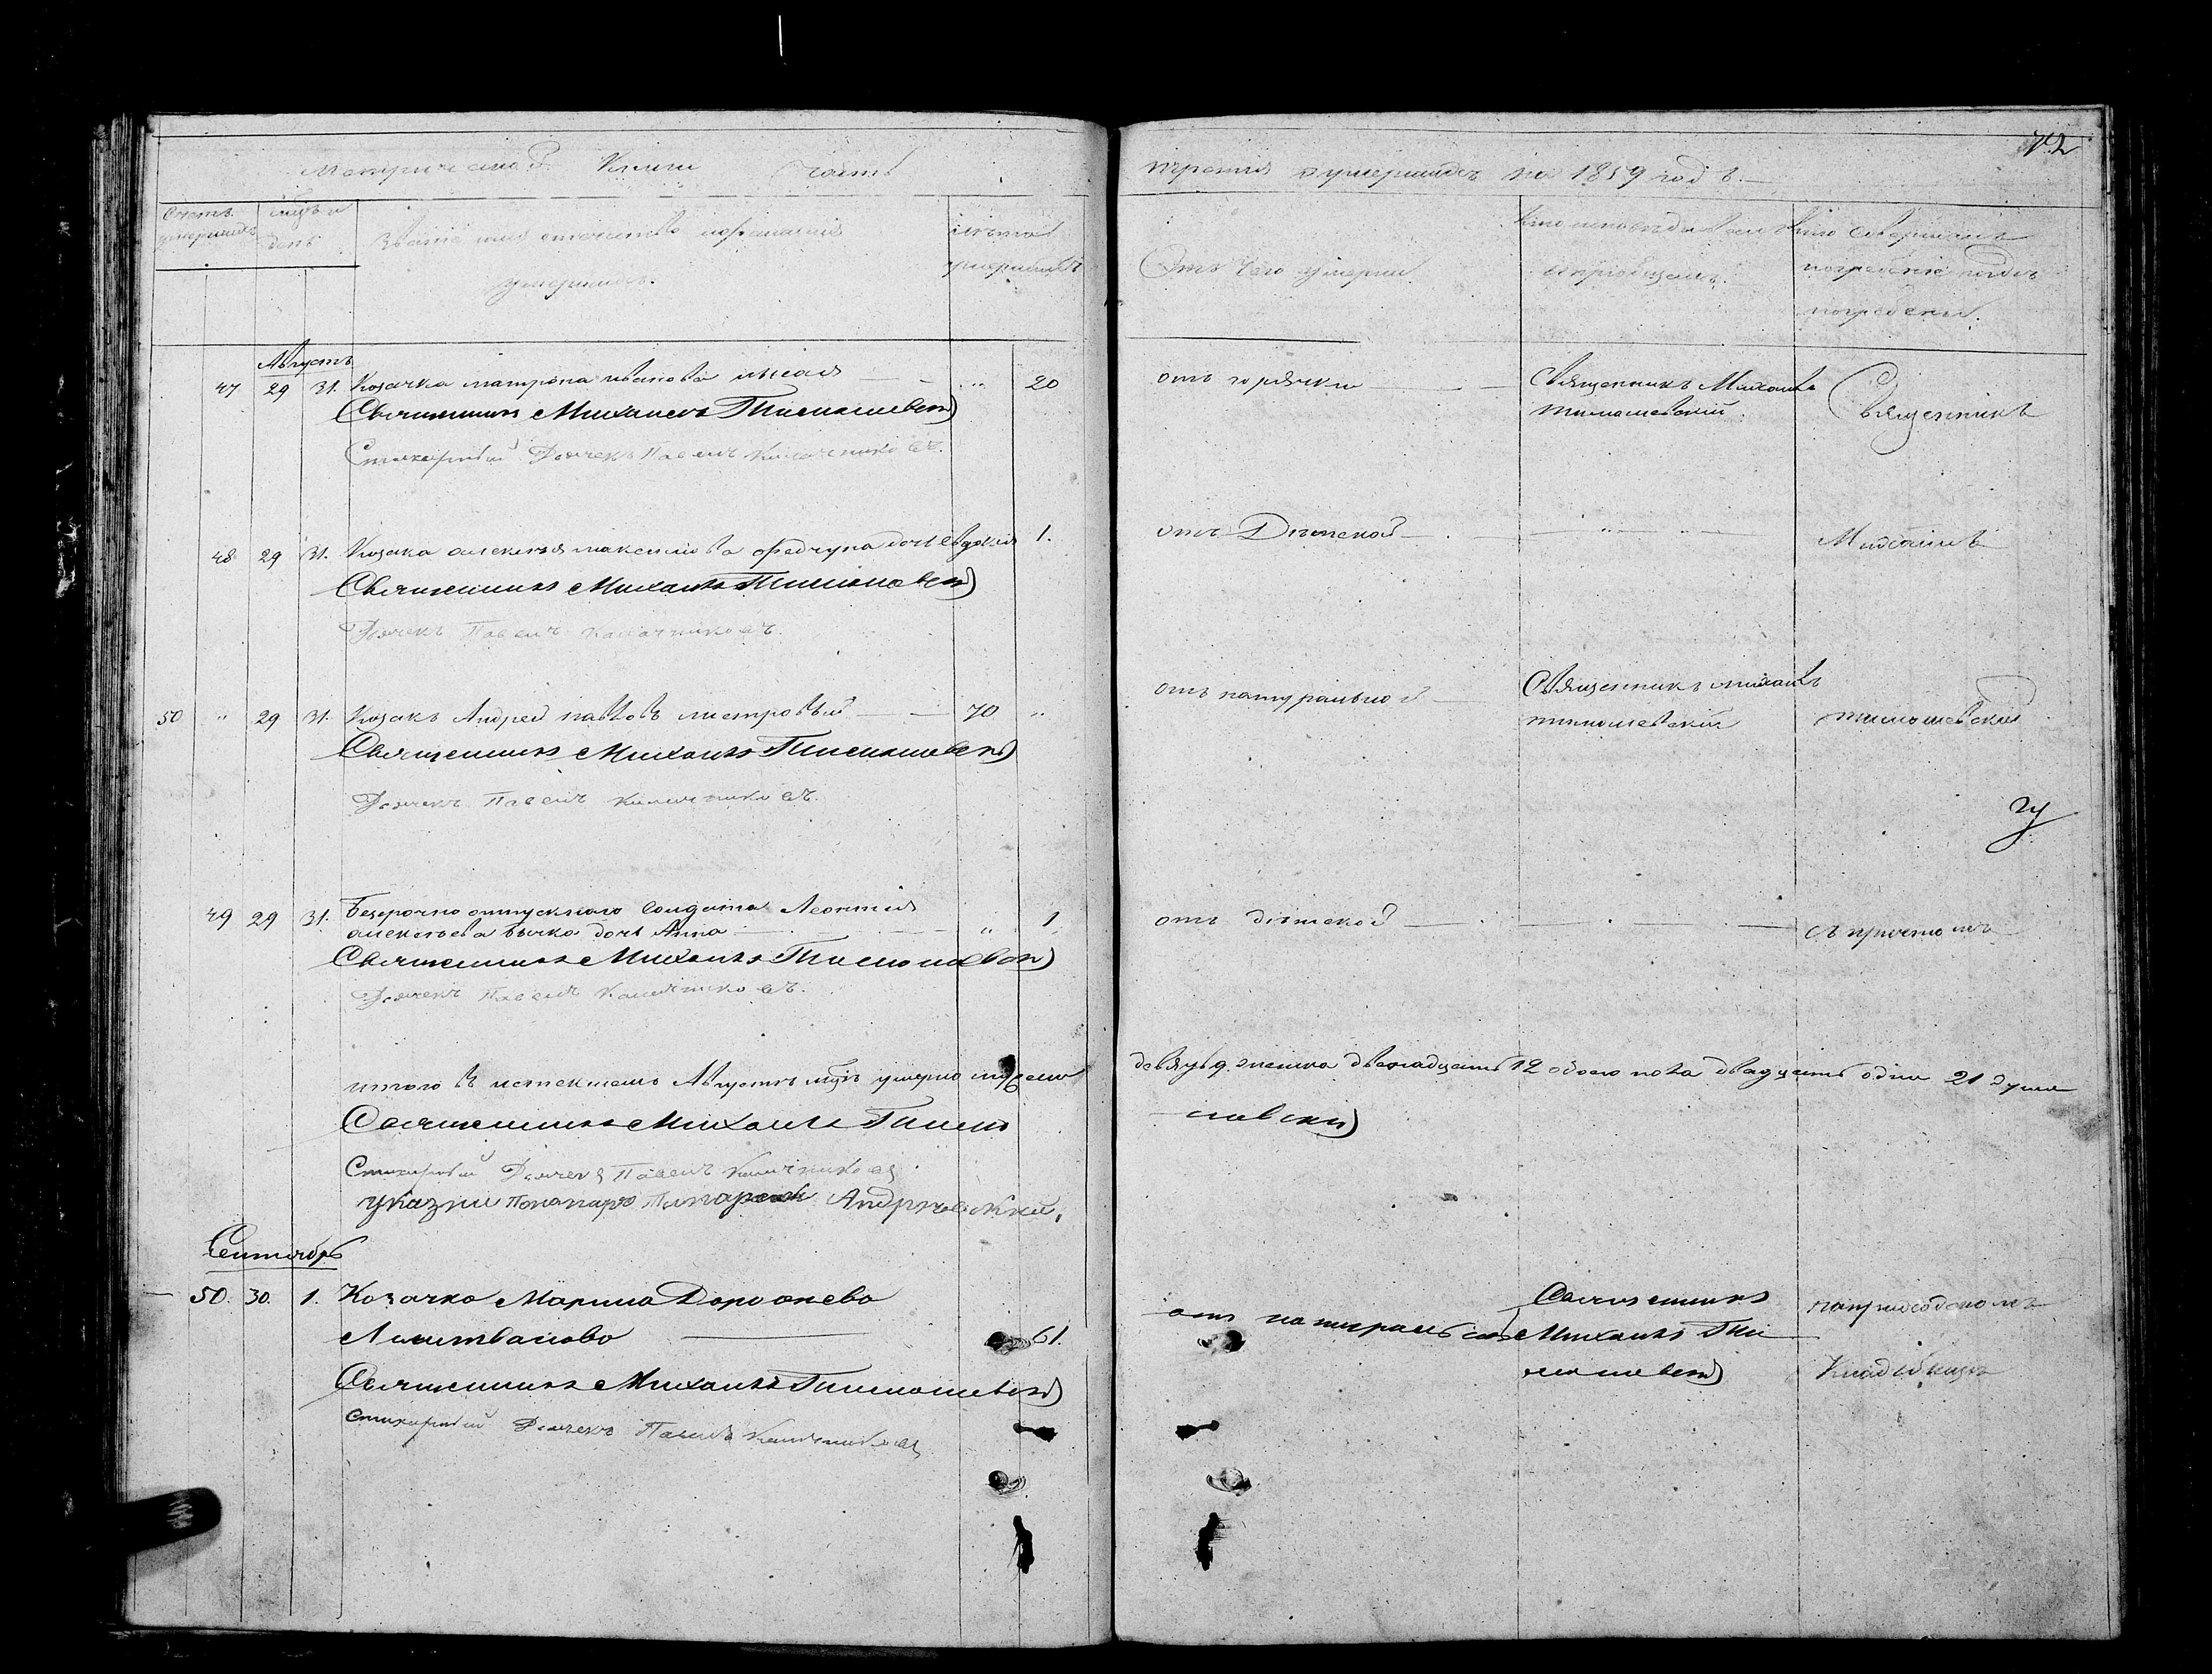 Метрической Книги Часть
третия о умершихъ на 1859 годъ.
72
Счетъ умершихъ
мцъ и день
Званіе имя отечество и фамилія умершихъ.
лѣта умершихъ
Отъ чего умерли
Кто исповѣдывалъ и пріобщалъ.
Кто совершалъ погребеніе и гдѣ погребены.
Августъ
47 29 31. Козачка матрона иванова 20
отъ горячки
Священникъ Михаилъ
тимошевскій.
Священникъ
Священникъ Михаилъ Тимошевскій
Стихарный Дьячекъ Павелъ
48 29 31. Козака алексѣя максимова федчуна дочь евдокія 1.
отъ Дѣтской
Михаилъ
Священникъ Михаилъ Тимошевскій
Дьячекъ Павелъ
50 " 29 31. Козакъ Андрей павловъ 70 "
отъ натуральной
Священникъ михаилъ
тимошевскій
тимошевскій
Священникъ Михаилъ Тимошевскій
Дьячекъ Павелъ
49 29 31. Безсрочно отпускного солдата Леонтія
алексѣева бычка дочь Анна " 1
отъ дѣтской
съ причтомъ
Священникъ Михаилъ Тимошевскій
Дьячекъ Павелъ
итого въ истекшемъ Августѣ мцѣ умерло мужеска
девять 9. женска двенадцать 12 обоего пола двадцать одна 21 душа
Священникъ Михаилъ Тимо
шевскій
Стихарный Дьячекъ Павелъ
указни Понамарь Андріевскій.
Сентябрь
50. 30. 1. Козачка Марина Дорофеева
61.
отъ натуральной
Священникъ
Михаилъ Тим
ошевскій
на приходскомъ
Кладбищѣ
Священникъ Михаилъ Тимошевскій
стихарный Дьячекъ Павелъ